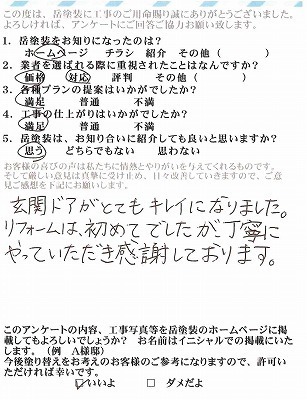 この度は、岳塗装に工事のご用命賜り誠にありがとうございました。
よろしければ、アンケートにご回答ご協力お願い致します。
1．岳塗装をお知りになったのは？
ホームページ　チラシ　紹介　その他（　　　）
2．業者を選ばれる際に重視されたことはなんですか？
価格　対応　評判　その他（　　　）
3．各種プランの提案はいかがでしたか？
満足　普通　不満
4．工事の仕上がりはいかがでしたか？
満足　普通　不満
5．岳塗装は、お知り合いに紹介しても良いと思いますか？
思う　どちらでもない　思わない
お客様の喜びの声は私たちに情熱とやりがいを与えてくれるものです。
そして厳しい意見は真摯に受け止め、日々改善していきますので、ご意
見ご感想を下記にお願いします。
玄関ドアがとてもキレイになりました。
リフォームは、初めてでしたが丁寧に
やっていただき感謝しております。
このアンケートの内容、工事写真等を岳塗装のホームページに掲
載してもよろしいでしょうか？　お名前はイニシャルでの掲載にいた
します。（例　A様邸）
今後塗り替えをお考えのお客様のご参考になりますので、許可い
ただければ幸いです。
いいよ　□　ダメだよ